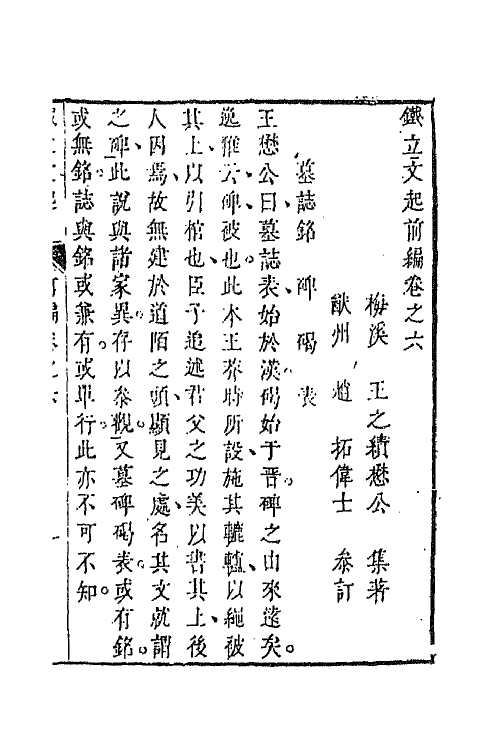 鐵立文起前編卷之六
梅溪　王之績懋公　集著
猷州　趙　拓偉士　叅訂
墓誌銘　碑　碣　表
王懋公曰墓誌表始於漢碣始于晋碑之由來遠矣。
逸雅云碑被也此本王莽時所設施其轆轤以繩被
其上以引棺也臣子追述君父之功美以書其上後
人因焉故無建於道陌之頭顯見之處名其文就謂
之碑此說與諸家異存以叅觀又墓碑碣表或有銘。
或無銘誌與銘或兼有或單行此亦不可不知。